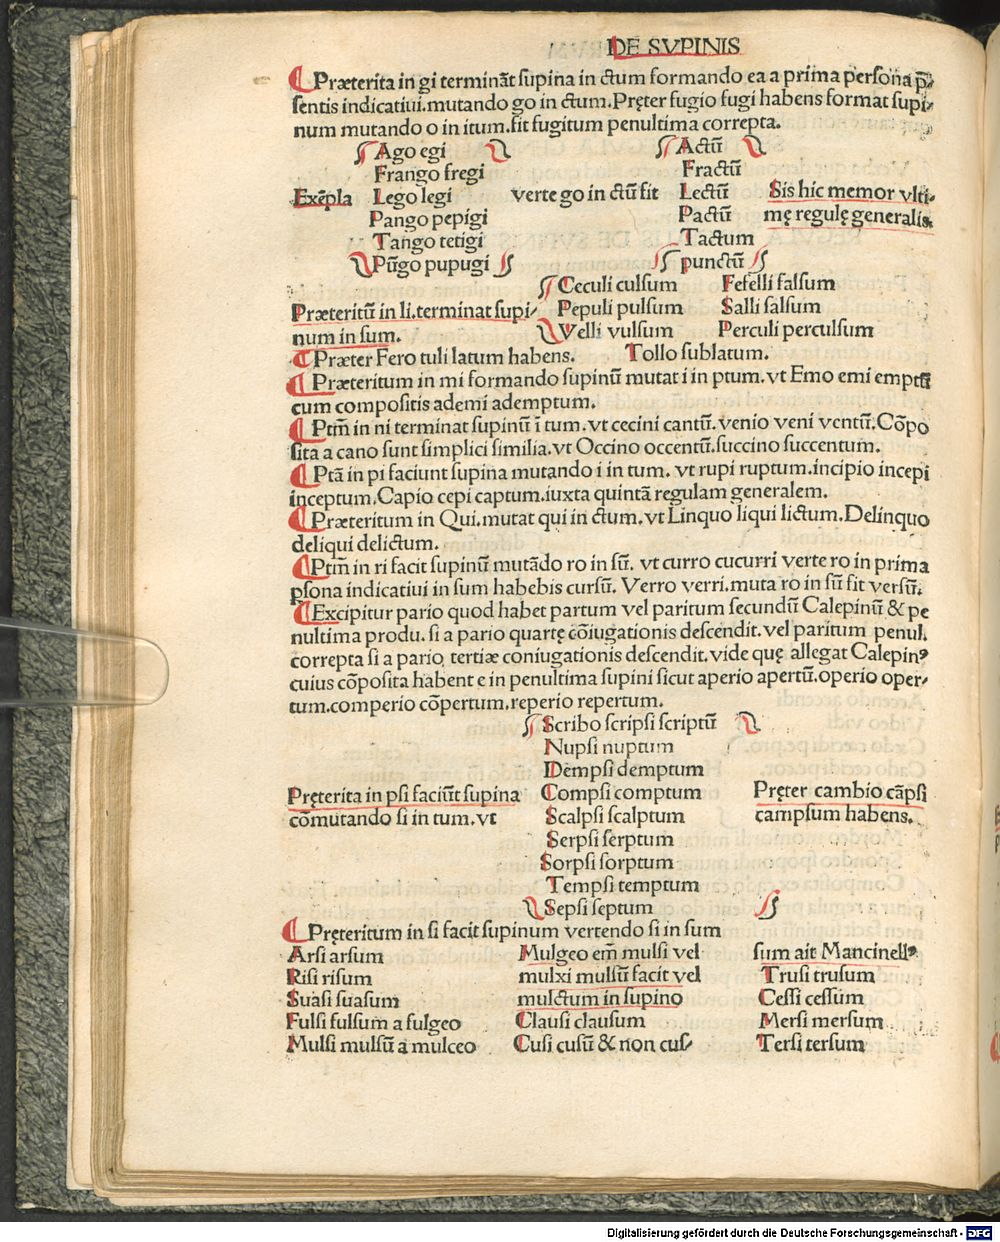 DE SVPINIS
Præterita in gi terminãt supina in ctum formando ea a prima persona p̃-
sentis indicatiui.mutando go in ctum.Pręter fugio fugi habens format supi-
num mutando o in itum.fit fugitum penultima correpta.
Ago egi Actũ
Frango fregi Fractũ
Exẽpla Lego legi verte go in ctũ fit Lectũ Sis hic memor vlti-
Pango pepigi Pactũ mę regulę generalis.
Tango tetigi Tactum
Pũgo pupugi punctũ
Ceculi culsum Fefelli falsum
Præteritũ in li.terminat supi- Pepuli pulsum Salli salsum
num in sum. Velli vulsum Perculi perculsum
Præter Fero tuli latum habens. Tollo sublatum.
Præteritum in mi formando supinũ mutat i in ptum.vt Emo emi emptũ
cum compositis ademi ademptum.
Ptm̃ in ni terminat supinũ ĩ tum.vt cecini cantũ.venio veni ventũ.Cõpo
sita a cano sunt simplici similia.vt Occino occentũ.succino succentum.
Ptã in pi faciunt supina mutando i in tum. vt rupi ruptum.incipio incepi
inceptum.Capio cepi captum.iuxta quintã regulam generalem.
Præteritum in Qui.mutat qui in ctum.vt Linquo liqui lictum.Delinquo
deliqui delictum.
Ptm̃ in ri facit supinũ mutãdo ro in sũ. vt curro cucurri verte ro in prima
psona indicatiui in sum habebis cursũ. Verro verri.muta ro in sũ fit versũ.
Excipitur pario quod habet partum vel paritum secundũ Calepinũ & pe
nultima produ. si a pario quartę cõiugationis descendit.vel paritum penul.
correpta si a pario tertiæ coniugationis descendit.vide quę allegat Calepinꝰ
cuius cõposita habent e in penultima supini sicut aperio apertũ.operio oper-
tum.comperio cõpertum.reperio repertum.
Scribo scripsi scriptũ
Nupsi nuptum
Dempsi demptum
Pręterita in psi faciũt supina Compsi comptum Pręter cambio cãpsi
cõmutando si in tum.vt Scalpsi scalptum campsum habens.
Serpsi serptum
Sorpsi sorptum
Tempsi temptum
Sepsi septum
Pręteritum in si facit supinum vertendo si in sum
Arsi arsum Mulgeo em̃ mulsi vel sum ait Mancinellꝰ
Risi risum mulxi mulsũ facit vel Trusi trusum
Suasi suasum mulctum in supino Cessi cessum
Fulsi fulsum a fulgeo Clausi clausum Mersi mersum
Mulsi mulsũ a mulceo Cusi cusũ & non cus- Tersi tersum
Digitalisierung gefördert durch die Deutsche Forschungsgemeinschaft - DFG